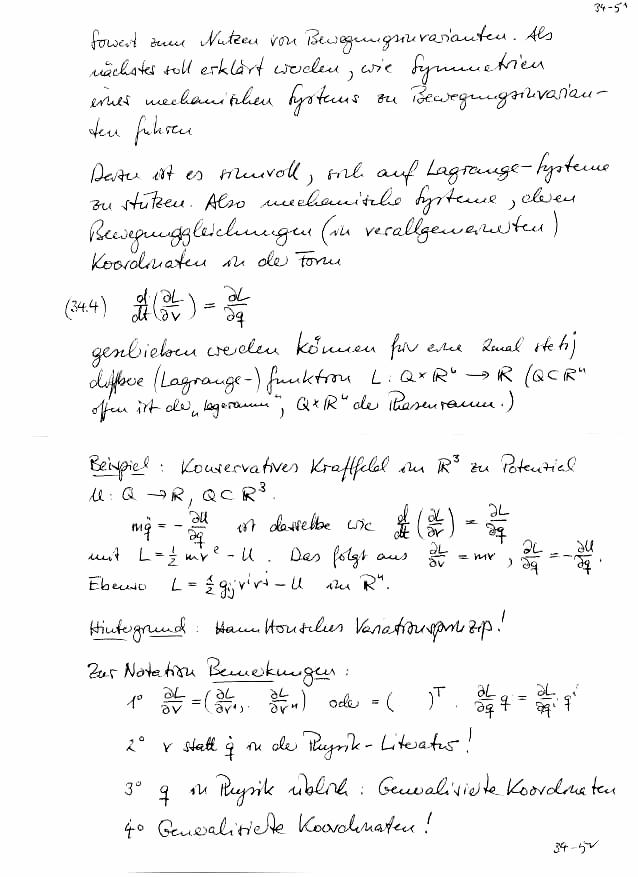 34-51
Soweit zum Nutzen von Bewegungsinvarianten. Als
nächstes soll erklärt werden, wie Symmetrien
eines mechanischen Systems zu Bewegungsinvarian-
ten führen
Dazu ist es sinnvoll, sich auf Lagrange-Systeme
zu stützen. Also mechanische Systeme, deren
Bewegungsgleichungen (in verallgemeinerten)
Koordinaten in der Form
(34.4) d/dt (∂L/∂v) = ∂L/∂q
geschrieben werden können für eine 2mal stetig
diffbare (Lagrange-) funktion L : Q × ℝⁿ → ℝ (Q ⊂ ℝⁿ
offen ist der "Lageraum", Q × ℝⁿ der Phasenraum.)
Beispiel : Konservatives Kraftfeld im ℝ³ zu Potenzial
U : Q → ℝ, Q ⊂ ℝ³.
mq̈ = - ∂U/∂q ist dasselbe wie d/dt (∂L/∂v) = ∂L/∂q
mit L = ½ mv² - U . Das folgt aus ∂L/∂v = mv , ∂L/∂q = - ∂U/∂q .
Ebenso L = ½ gᵢⱼvⁱvʲ - U im ℝⁿ.
Hintergrund : Hamiltonsches Variationsprinzip!
Zur Notation Bemerkungen :
1° ∂L/∂v = (∂L/∂v¹, . ∂L/∂vⁿ) oder = ( )ᵀ . ∂L/∂q q = ∂L/∂qⁱ qⁱ
2° v statt q̇ in der Physik-Literatur!
3° q in Physik üblich : Generalisierte Koordinaten
4° Generalisierte Koordinaten!
34-52